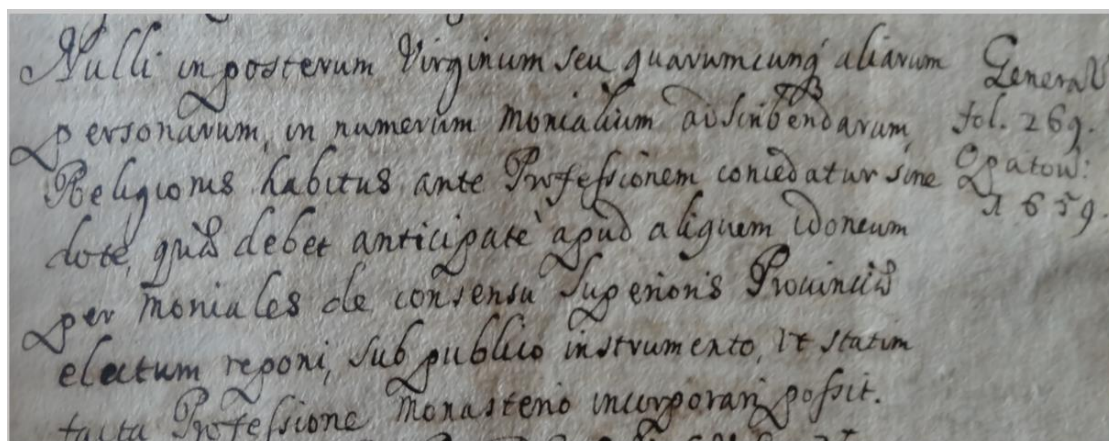 Nulli in posterum Virginum seu quarumcunq aliarum
personarum, in numerum Monialium adscribendarum,
Religionis habitus ante Professionem concedatur sine
dote, quæ debet anticipatè apud aliquem idoneum
per Moniales de consensu Superioris Prouinciæ
electum reponi, sub publico instrumento, vt statim
facta Professione Monasterio incorporari possit.
General
fol. 269.
Opatow:
1659.